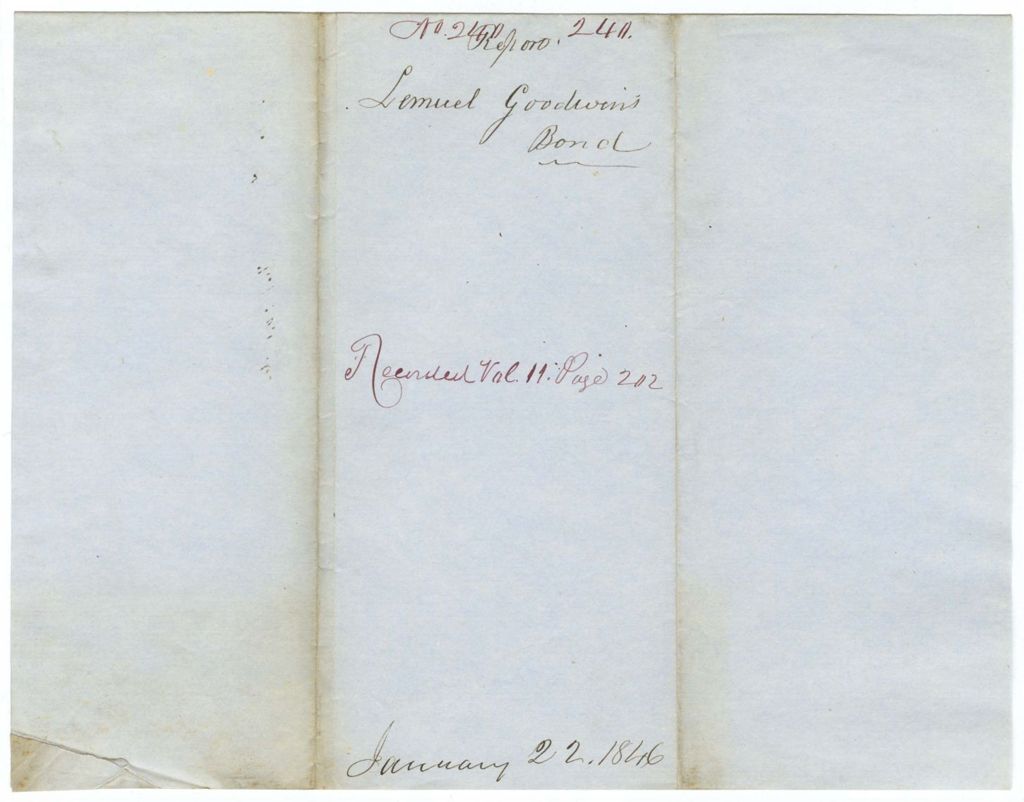 No. 240. 240.
Repord.
Lemuel Goodwin's
Bond
Recorded Vol. 11. Page 202
January 22. 1846